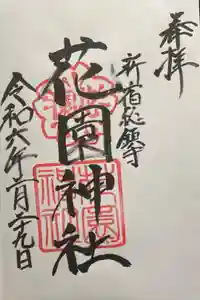 奉拝
新宿総鎮守
花園神社
令和六年二月二十九日